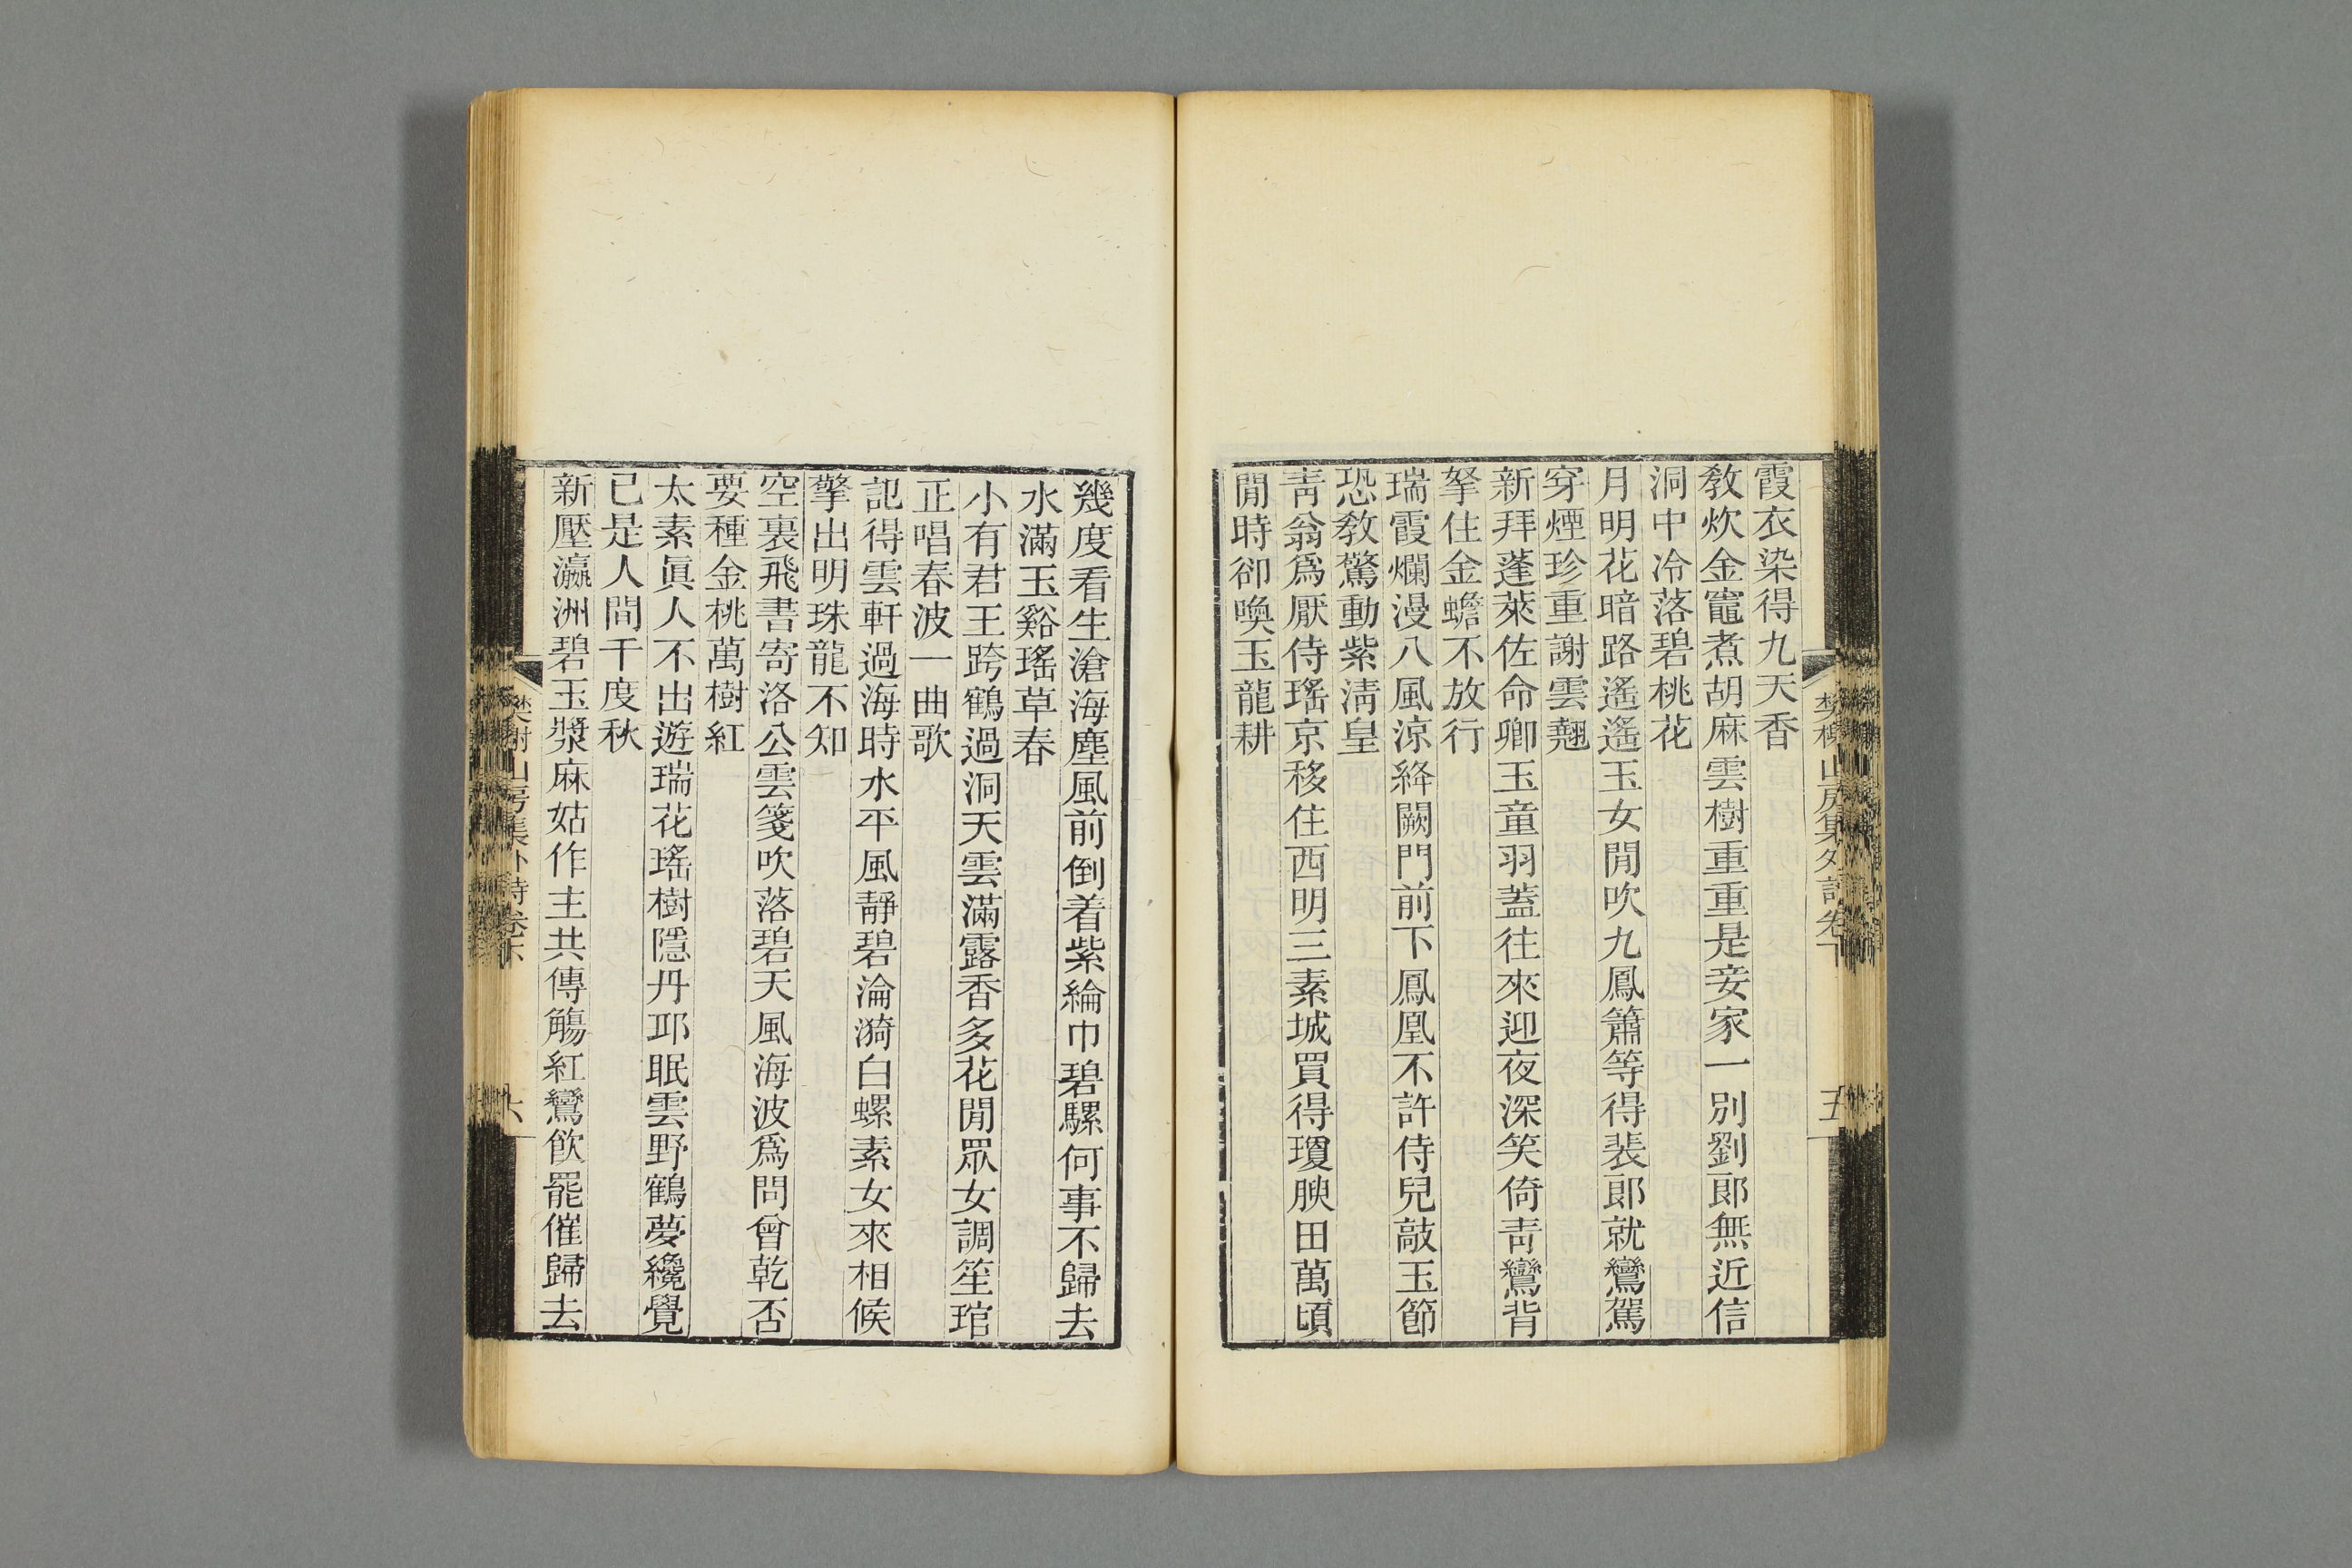 霞衣染得九天香
敎炊金竈煮胡麻雲樹重重是妾家一別劉郞無近信
洞中冷落碧桃花
月明花暗路遙遙玉女閒吹九鳳簫等得裴郞就鸞駕
穿煙珍重謝雲翹
新拜蓬萊佐命卿玉童羽蓋往來迎夜深笑倚靑鸞背
拏住金蟾不放行
瑞霞爛漫八風涼絳闕門前下鳳凰不許侍兒敲玉節
恐敎驚動紫淸皇
靑翁爲厭侍瑤京移住西明三素城買得瓊腴田萬頃
閒時卻喚玉龍耕
樊榭山房集外詩卷下
五
幾度看生滄海塵風前倒着紫綸巾碧騾何事不歸去
水滿玉谿瑤草春
小有君王跨鶴過洞天雲滿露香多花閒眾女調笙琯
正唱春波一曲歌
記得雲軒過海時水平風靜碧淪漪白螺素女來相候
擎出明珠龍不知
空裏飛書寄洛公雲箋吹落碧天風海波爲問曾乾否
要種金桃萬樹紅
太素眞人不出遊瑞花瑤樹隱丹邱眠雲野鶴夢纔覺
已是人間千度秋
新壓瀛洲碧玉漿麻姑作主共傳觴紅鸞飮罷催歸去
樊榭山房集外詩卷下
六